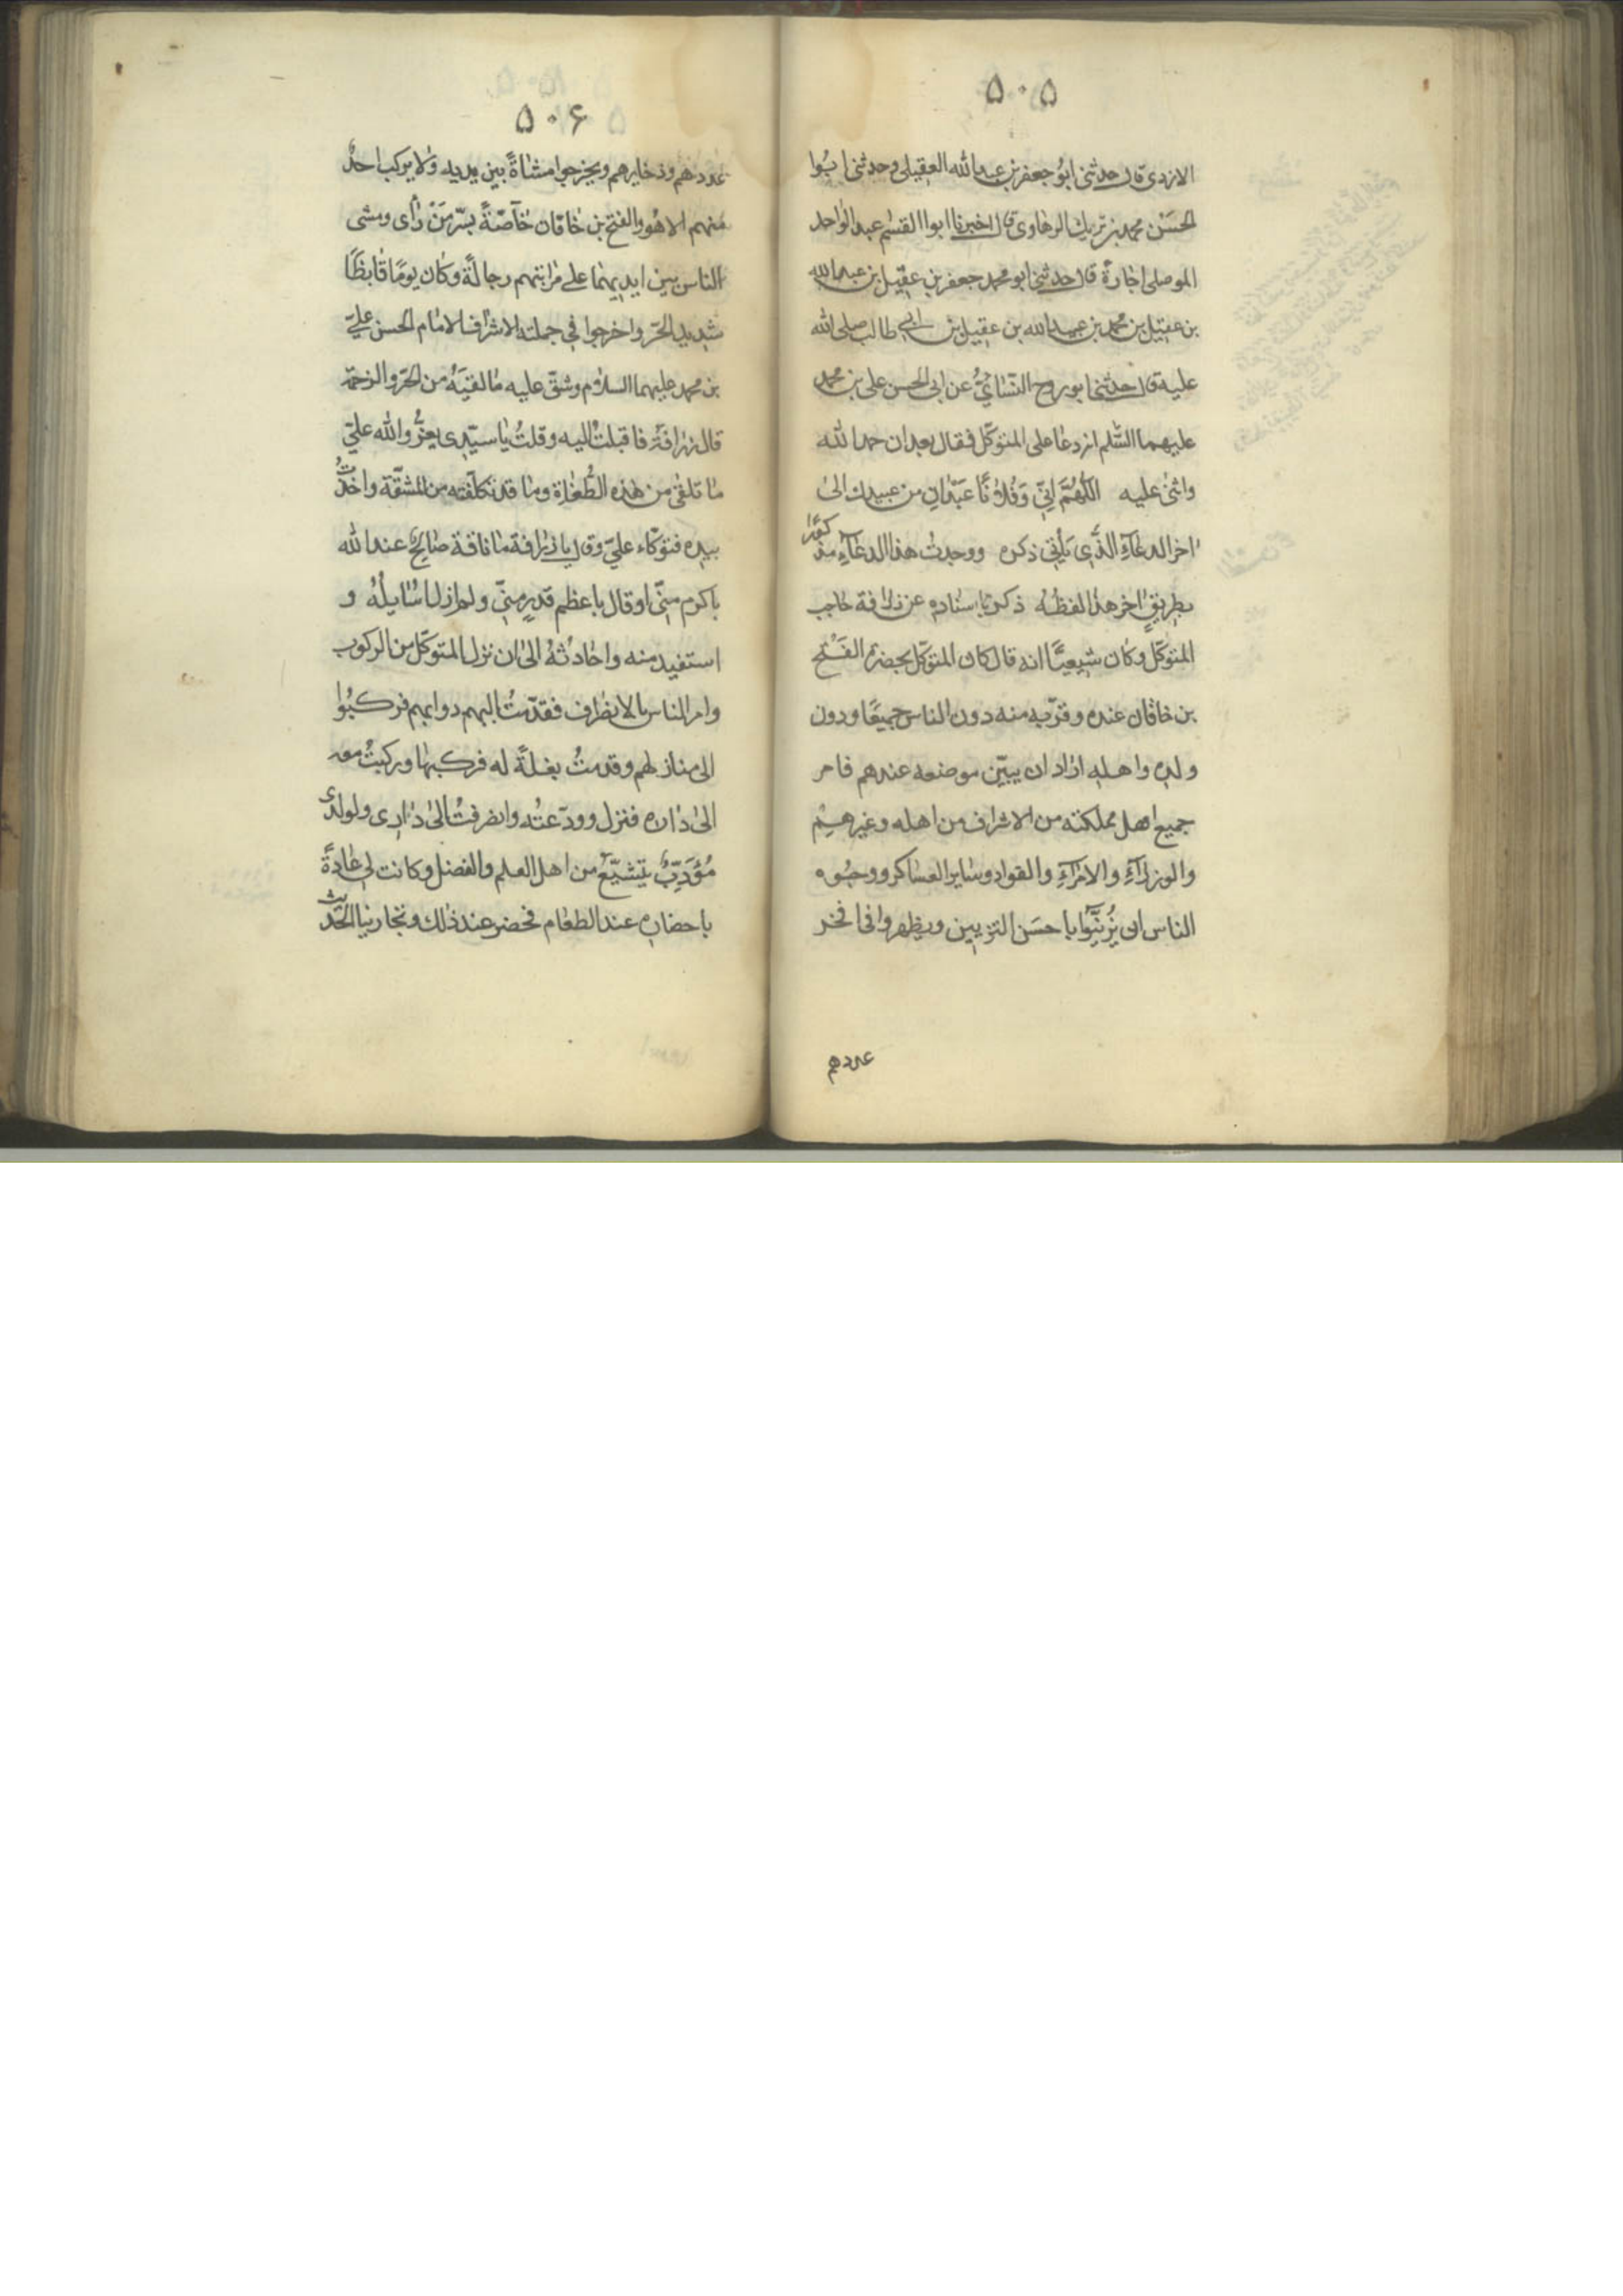 ۵۰۵
الازدی قال حدثنی ابُو جعفر بن عبد الله العقیلی وحدثنی ابُوا
الحسَن محمد بن بریك الرهاوی قال اخبرنا ابوا القسٰم عبد الواحد
الموصلی اجازةً قال حدثنی ابو محمد جعفر بن عقیل بن عبد الله
بن عقیل بن محمد بن عبد الله بن عقیل بن ابی طالب صلی الله
علیه قال حدثنا ابو روح النّسَایِیُّ عن ابی الحسن علی بن محمد
علیهما السَّلم انه دعا علی المتوكّل فقال بعد ان حمد الله
واثنی علیه اللّٰهُمَّ اِنّی وَفُلَانًا عَبْدَانِ من عبیدك الیٰ
اخر الدعَآءِ الَّذِی یَأتی ذكره ووجدت هذا الدعَآءِ مذكورًا
بطریقٍ اخر هذا لفظُه ذكر باسناده عن زرافة حاجب
المتوكّل وكان شیعیًّا انه قال كان المتوكّل بحضرة الفَتْح
بن خاقان عنده وقرّبه منه دون الناس جمیعًا ودون
ولده واهله اراد ان یبیّن موضعه عندهم فامر
جمیع اهل مملكته من الاشراف من اهله وغیرهِم
والوزرَآءِ والامرَآءِ والقواد وسَایر العسَاكر ووجُوه
الناس ان یُزَیّنُوا باحسَن التزیین ویظهروا فی افخر
عددهم
۵۰۶
عُددهم وذخایرهم ویخرجوا مشاةً بین یدیه ولا یركب احدٌ
منهم الا هُو والفتح بن خَاقان خَآصّةً بسُرّ مَنْ رأی ومشی
الناس بین ایدیهما علی مراتبهم رجالةً وكان یومًا قایظًا
شدید الحَرّ واخرجوا فی جملته الاشراف الامَام الحسن علیّ
بن محمد علیهما السلام وشقّ علیه مَا لقیَهُ من الحَرّ والزحمة
قال زرافة فاقبلتُ الیه وقلتُ یَا سیّدی یعزُّ والله علیّ
مَا تلقیٰ من هٰذه الطُّغَاة وما قد تكلّفته من المشقّة واخذتُ
بیده فتوكّاء علیّ وقال یا زرافة مَا ناقة صَالحٍ عند الله
باكرم منّی او قال باعظم قدرٍ منّی ولم ازل اسَایلُهُ و
استفید منه واحَادثهُ الیٰ ان نزل المتوكّل من الركوب
وامر الناس بالانصراف فقدّمتُ الیهم دوابهم فركبُوا
الی منازلهم وقدمتُ بغلةً له فركبهَا وركبتُ معه
الیٰ دَاره فنزل وودّعتُه وانصرفتُ الیٰ دَاری ولولدی
مُؤَدّبٌ یتشیّعُ من اهل العلم والفضل وكانت لی عَادةً
باحضاره عند الطعَام فحضر عند ذٰلك وتجارینا الحَدیث